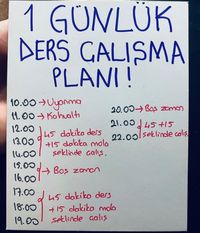 1 GÜNLÜK
DERS ÇALIŞMA
PLANI!
10.00 → Uyanma
11.00 → Kahvaltı
12.00
13.00
14.00
45 dakika ders
+15 dakika mola
şeklinde çalış.
15.00
16.00
→ Boş zaman
17.00
18.00
19.00
45 dakika ders
+15 dakika mola
şeklinde çalış
20.00 → Boş zaman
21.00
22.00
45+15
şeklinde çalış